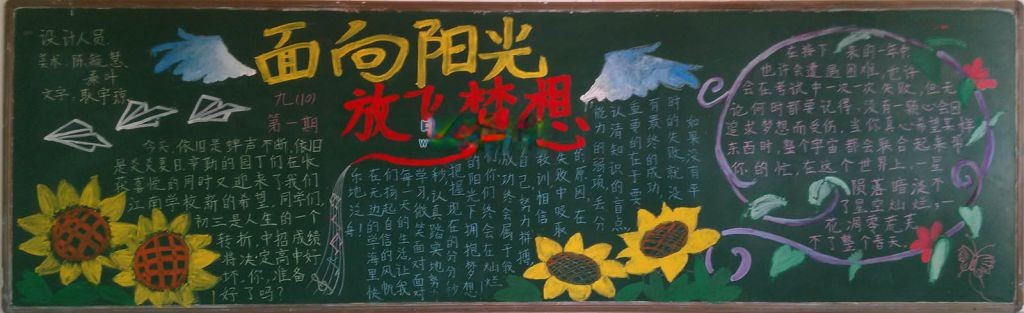 设计人员
美术：陈
文字：耿宇琼
面向阳光
放飞梦想
九(10)
第一期
今天，依旧是蝉声不断，依旧
是炎炎夏日，辛勤的园丁们在收
获喜悦的同时又迎来了我们
江南学校新的希望。同学们，
初三是人生的一个
转折，中招成绩
将决定高中好
坏，你，准备
好了吗？
如果没有平
时的失败就没
有最终的成功
至重要的在于要
认清知识的盲点
能力的弱项，去分
的原因，在
失败中吸取
教训，相信自
自己，努力拼搏
成功终会属于我
们，你们终会在灿烂
的阳光下拥抱梦想
把握现在的分分秒
秒，认真踏实地努
学习，微笑面对面对
每一天的生活，让我
们扬起自信的风帆
在无边的学海里快
乐地泛舟！
在接下来的一年中
也许会遭遇困难，也许
会在考试中一次一次失败，但无
论何时都要记得，没有一颗心会因
追求梦想而受伤，当你真心希望某样
东西时，整个宇宙都会联合起来帮
你的忙，在这个世界上，一星
陨落，暗淡不
了星空灿烂，一
花凋零，荒芜
不了整个春天。